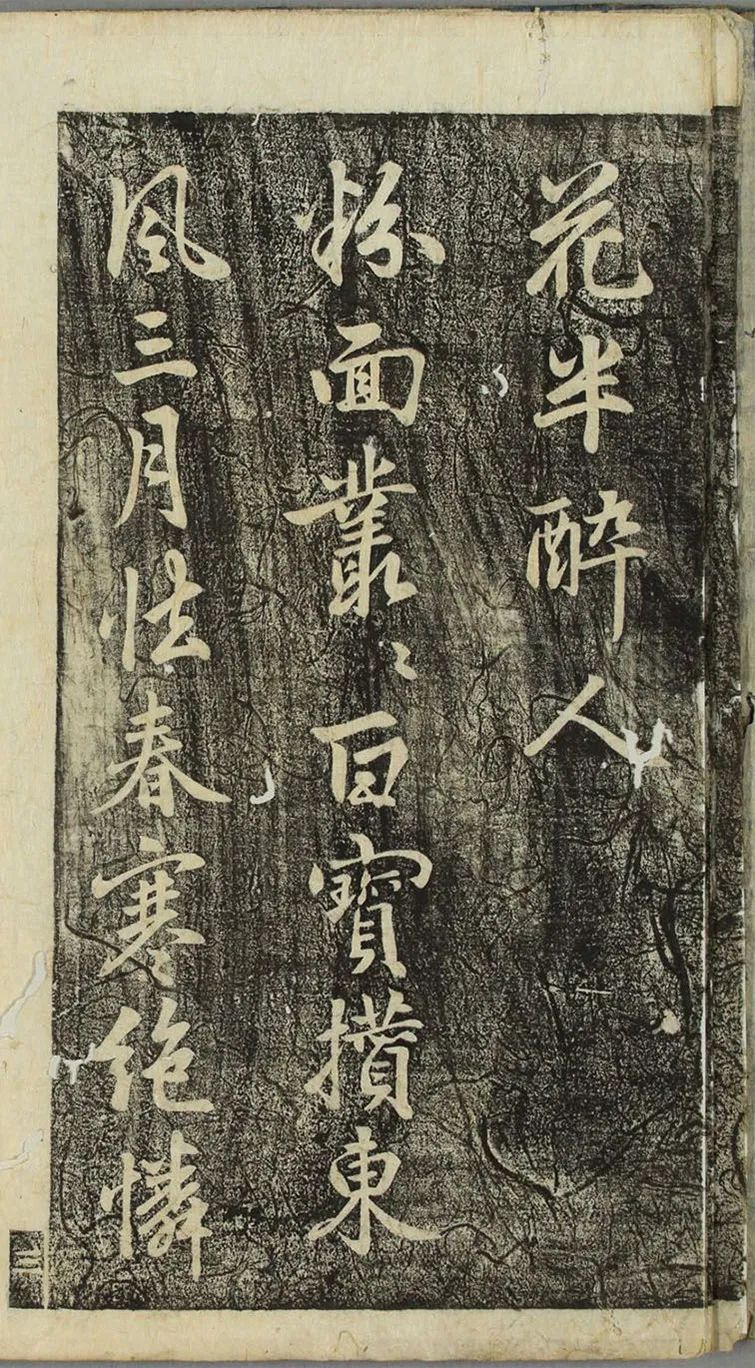 花半醉人
粉面叢〻百寶攢東
風三月怯春寒絶憐